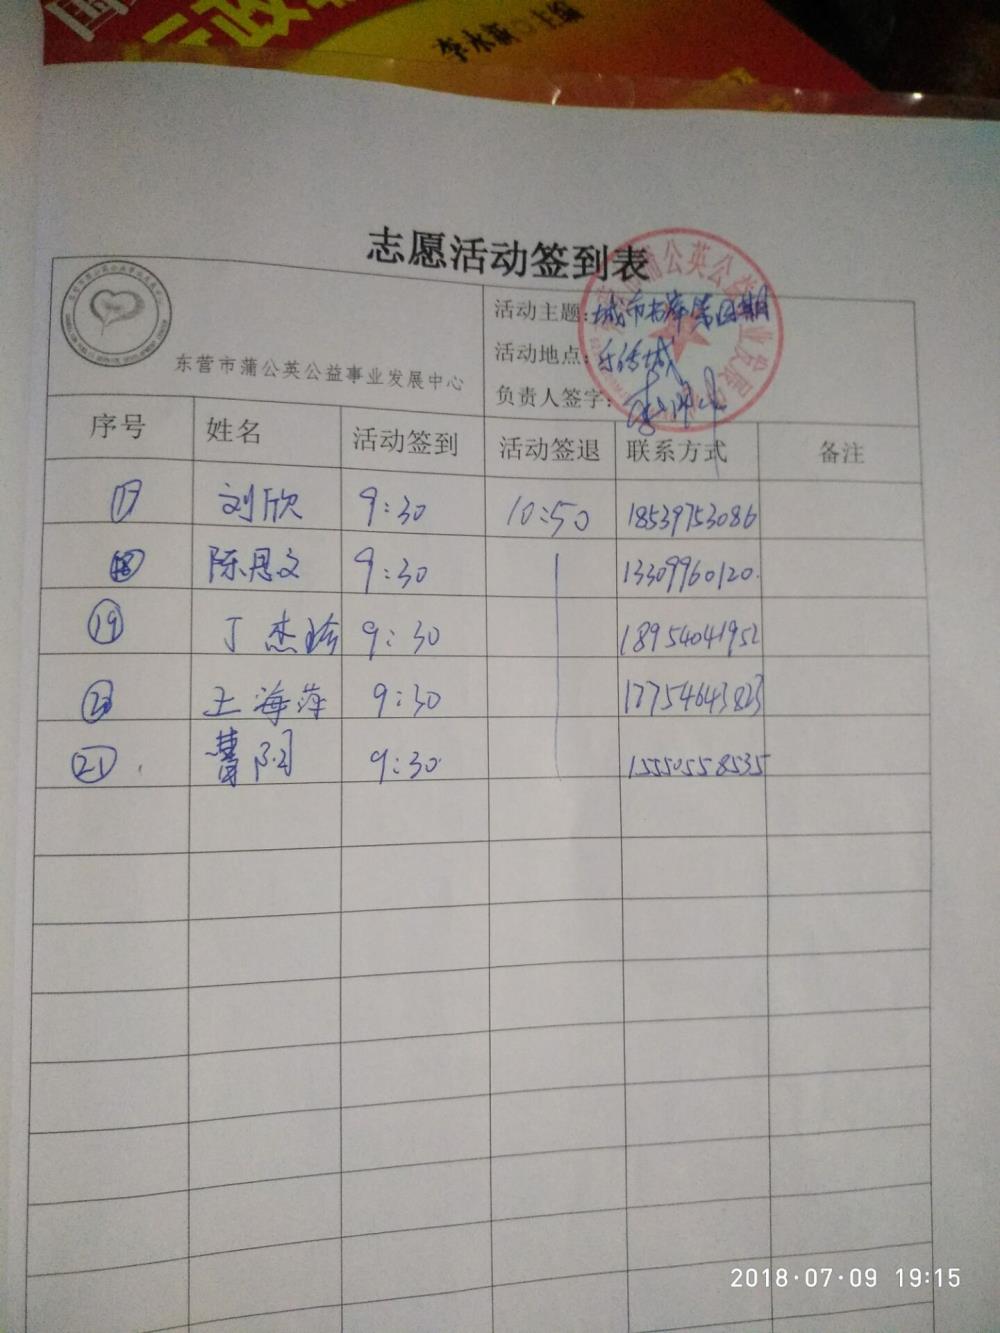 李水新 主编
志愿活动签到表
东营市蒲公英公益事业发展中心
活动主题:城市书房第四期
活动地点:
负责人签字:
序号 姓名 活动签到 活动签退 联系方式 备注
17 刘欣 9:30 10:50 18539753086
18 陈思文 9:30 13309960120
19 丁杰 9:30 18954041952
20 王海萍 9:30 17754643823
21 曹阳 9:30 15550558535
2018·07·09 19:15